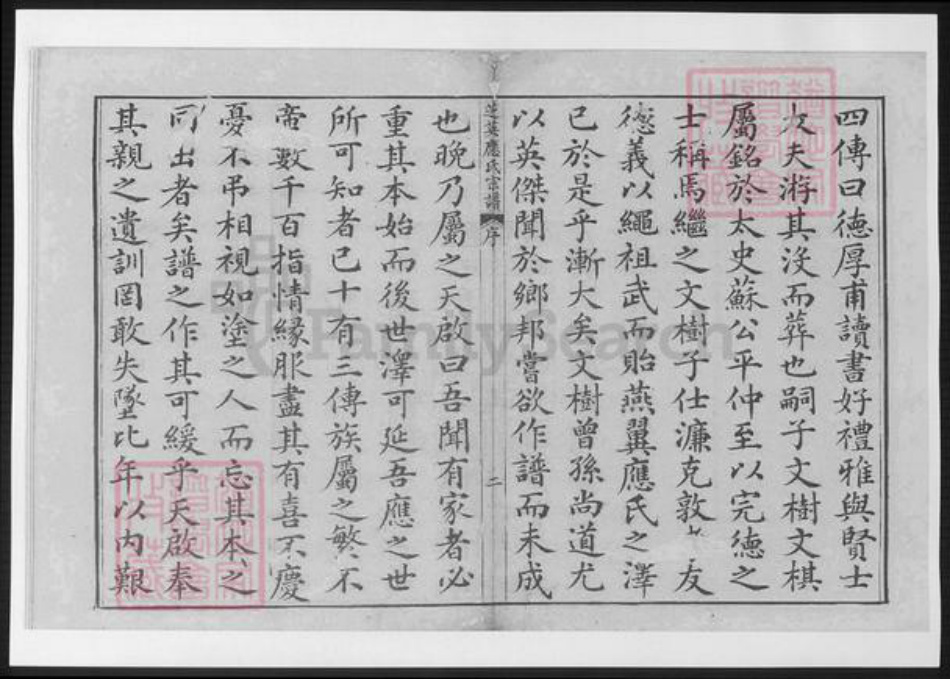 四傳曰德厚甫讀書好禮雅與賢士
大夫游其沒而葬也嗣子文樹文棋
屬銘於太史蘇公平仲至以完德之
士稱焉繼之文樹子仕濂克敦友
德義以繩祖武而貽燕翼應氏之澤
已於是乎漸大矣文樹曾孫尚道尤
以英傑聞於鄉邦嘗欲作譜而未成
芝英應氏宗譜 序 二
也晚乃屬之天啟曰吾聞有家者必
重其本始而後世澤可延吾應之世
所可知者已十有三傳族屬之繁不
啻數千百指情緣服盡其有喜不慶
憂不弔相視如塗之人而忘其本之
同出者矣譜之作其可緩乎天啟奉
其親之遺訓罔敢失墜比年以內艱
FamilySearch